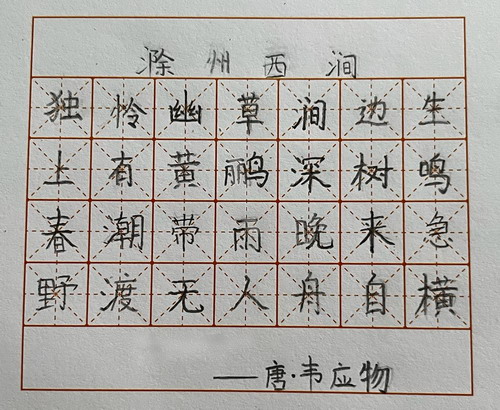 滁州西涧
独怜幽草涧边生
上有黄鹂深树鸣
春潮带雨晚来急
野渡无人舟自横
——唐·韦应物